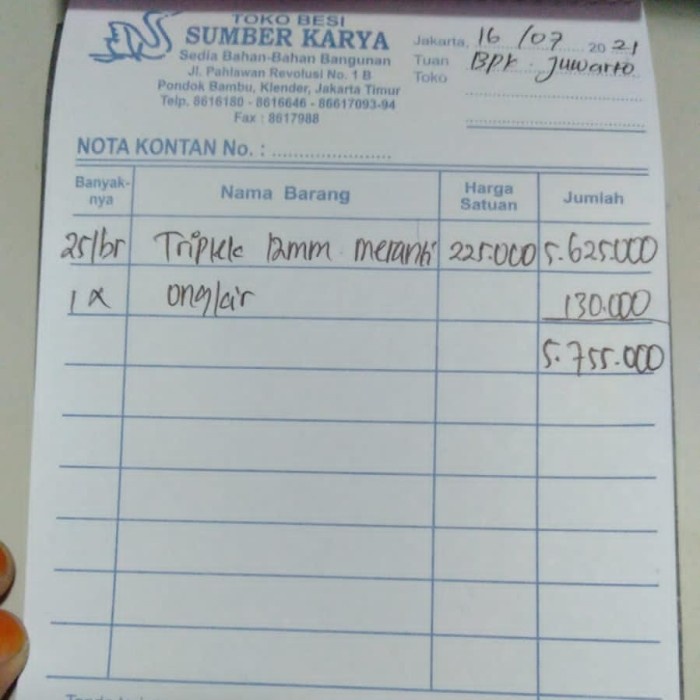 TOKO BESI
SUMBER KARYA
Sedia Bahan-Bahan Bangunan
Jl. Pahlawan Revolusi No. 1 B
Pondok Bambu, Klender, Jakarta Timur
Telp. 8616180 - 8616646 - 86617093-94
Fax : 8617988
Jakarta, 16 / 07 2021
Tuan Bpk. Juwarto
Toko
NOTA KONTAN No. :
Banyak-nya Nama Barang Harga Satuan Jumlah
25 lbr Triplek 12mm meranti 225.000 5.625.000
1 x ong/air 130.000
5.755.000